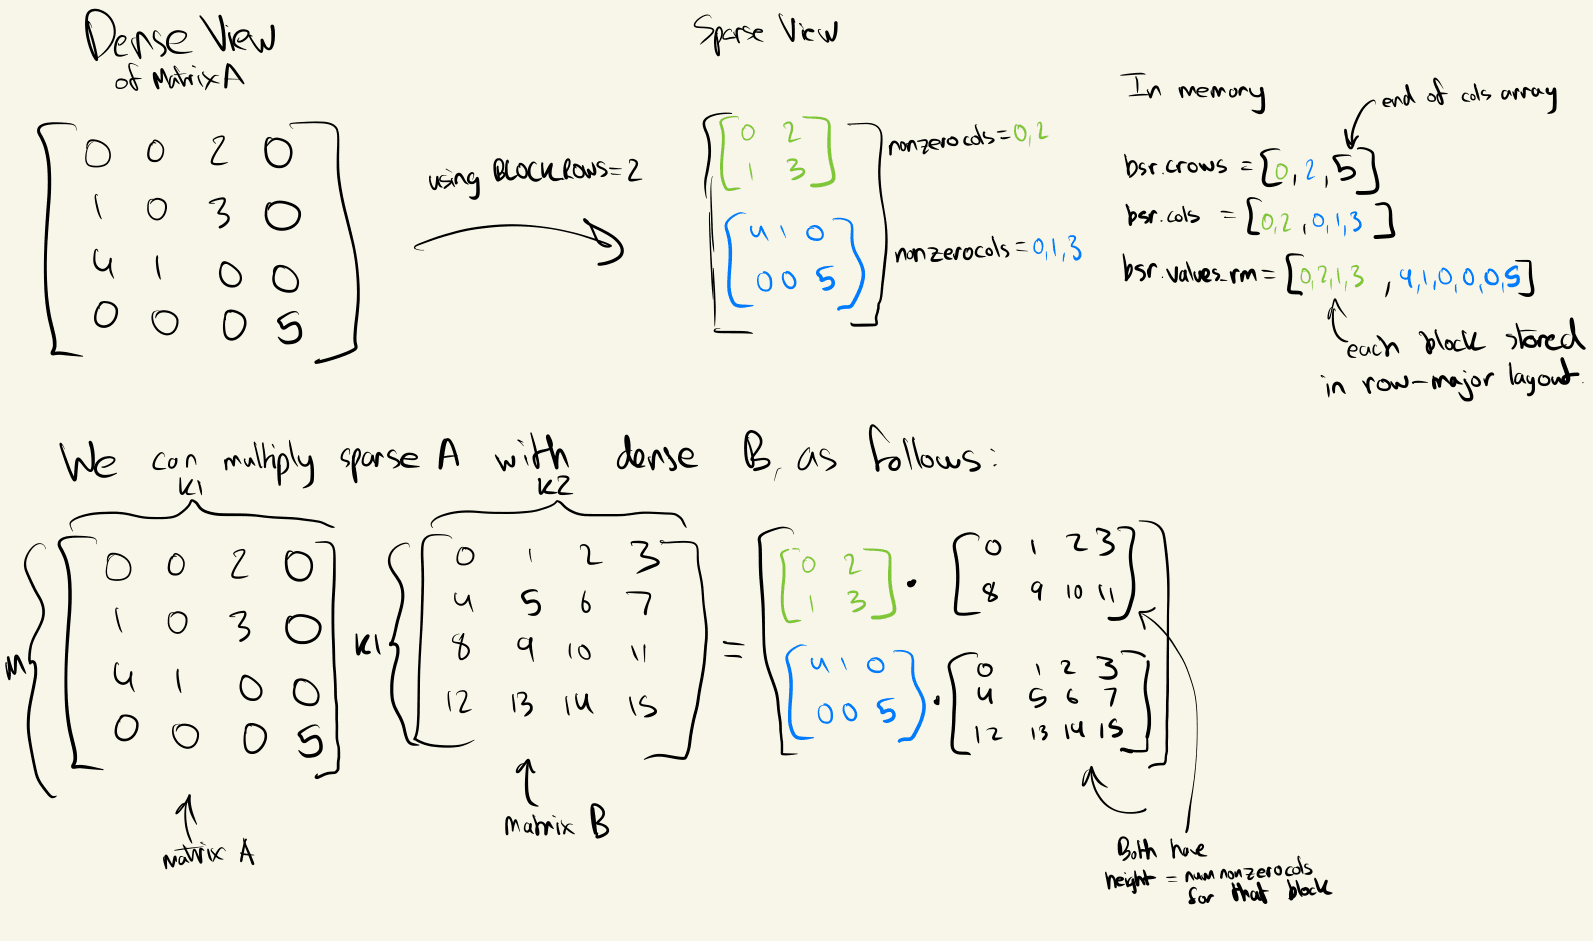 Dense View
of Matrix A
0 0 2 0
1 0 3 0
4 1 0 0
0 0 0 5
using BLOCKROWS=2
Sparse View
0 2
1 3
nonzero cols = 0,2
4 1 0
0 0 5
nonzero cols = 0,1,3
In memory
end of cols array
bsr.crows = [0, 2, 5]
bsr.cols = [0,2, 0,1,3]
bsr.values_rm = [0,2,1,3, 4,1,0,0,0,5]
each block stored
in row-major layout.
We can multiply sparse A with dense B, as follows:
K1
K2
M
0 0 2 0
1 0 3 0
4 1 0 0
0 0 0 5
matrix A
K1
0 1 2 3
4 5 6 7
8 9 10 11
12 13 14 15
matrix B
=
0 2
1 3
·
0 1 2 3
8 9 10 11
4 1 0
0 0 5
·
0 1 2 3
4 5 6 7
12 13 14 15
Both have
height = num nonzero cols
for that block